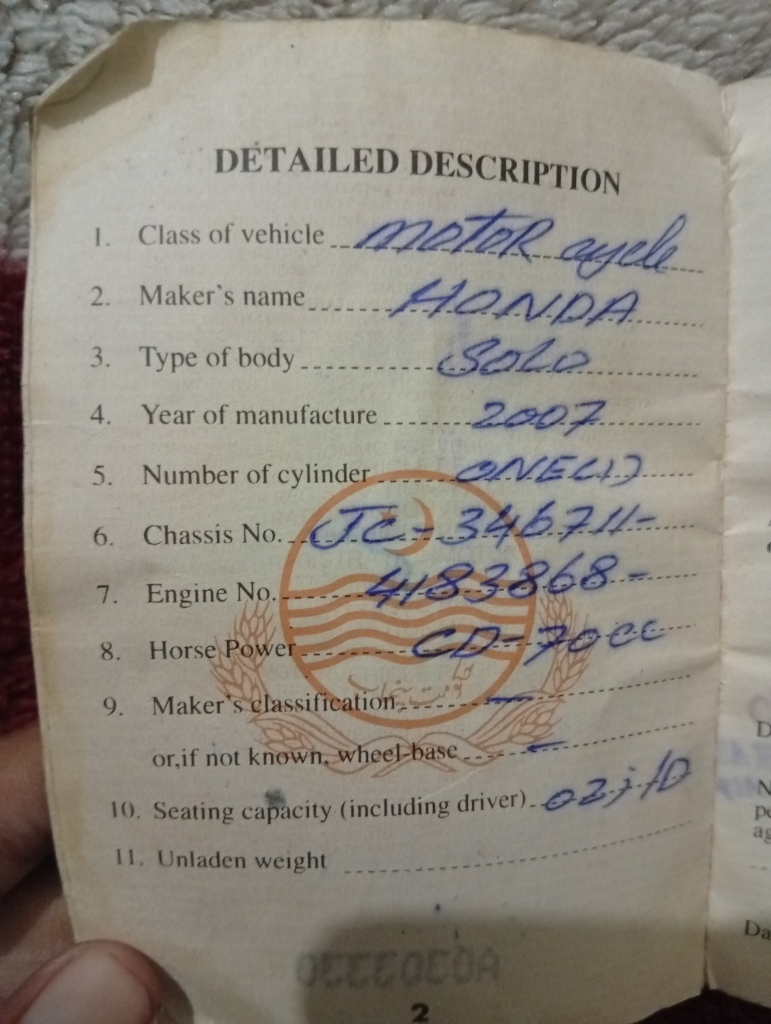 DETAILED DESCRIPTION
1. Class of vehicle motor cycle
2. Maker's name HONDA
3. Type of body SOLO
4. Year of manufacture 2007
5. Number of cylinder ONE(1)
6. Chassis No. JC-346711-
7. Engine No. 4183868-
8. Horse Power CD-70cc
9. Maker's classification —
حکومت پنجاب
or,if not known, wheel-base —
10. Seating capacity (including driver)
11. Unladen weight
A0303330
2